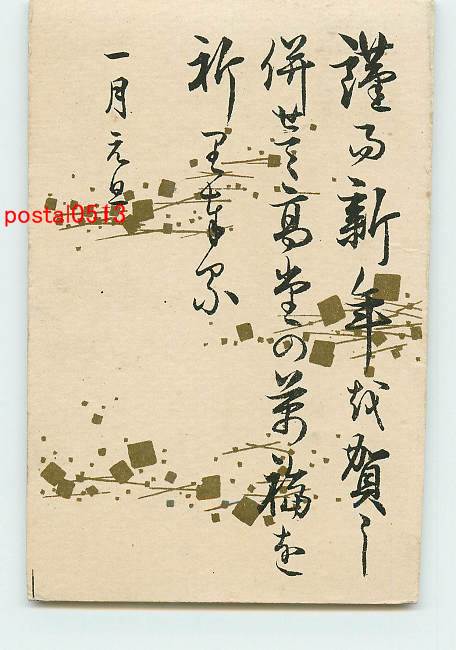 謹而新年越賀し
併せて高堂の萬福を
祈里奉候
一月元旦
postal0513